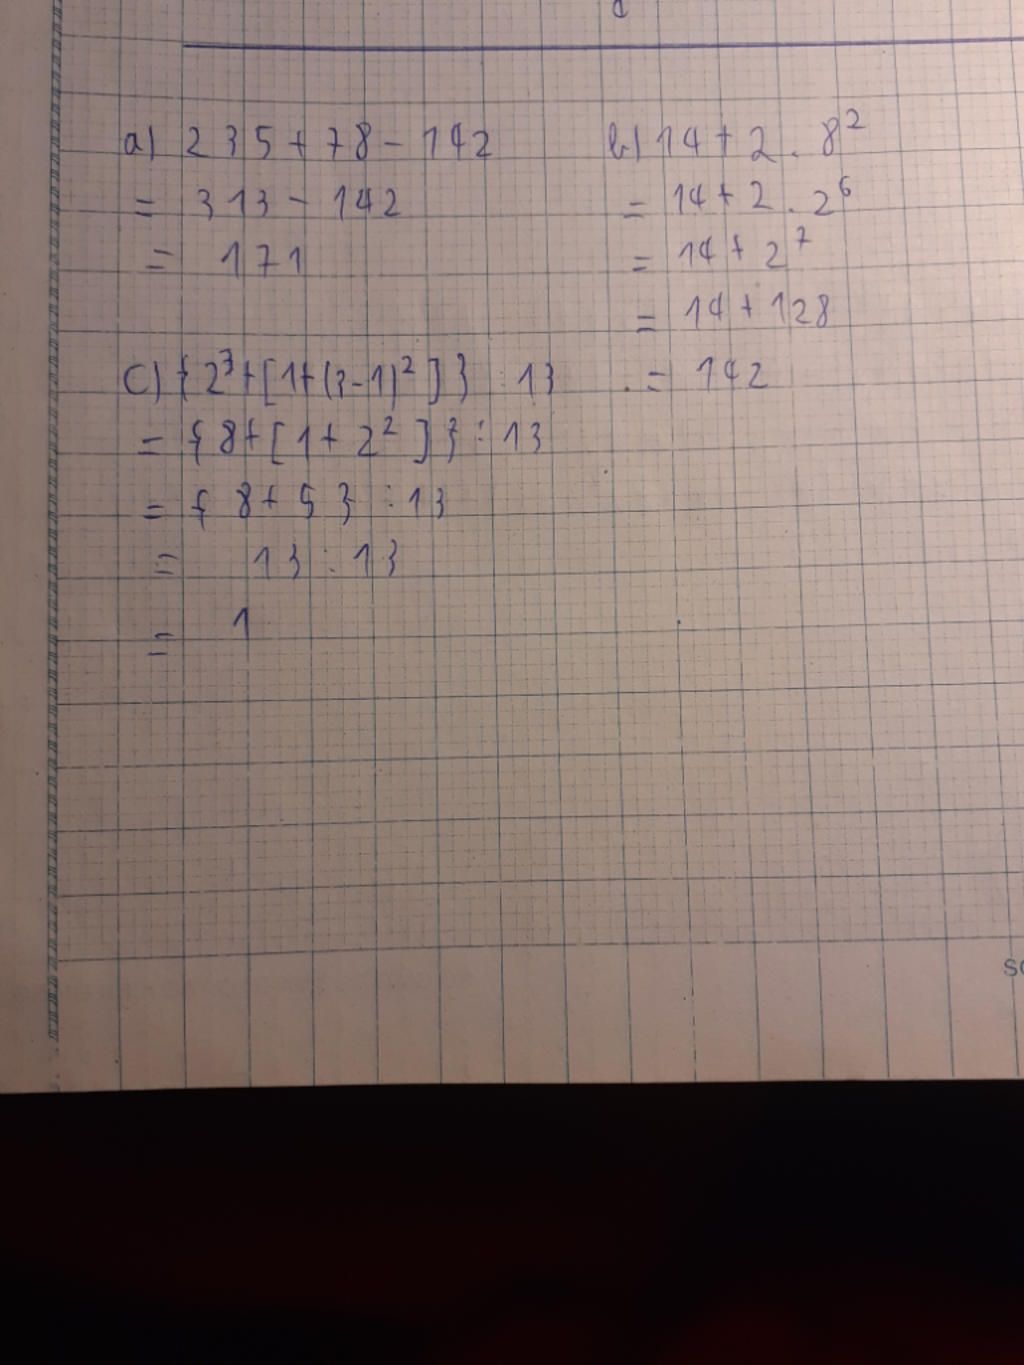 a) 235 + 78 - 142
= 313 - 142
= 171
b) 14 + 2 . 8²
= 14 + 2 . 2⁶
= 14 + 2⁷
= 14 + 128
= 142
c) { 2³ + [ 1 + (3 - 1)² ] } : 13
= { 8 + [ 1 + 2² ] } : 13
= { 8 + 5 } : 13
= 13 : 13
= 1